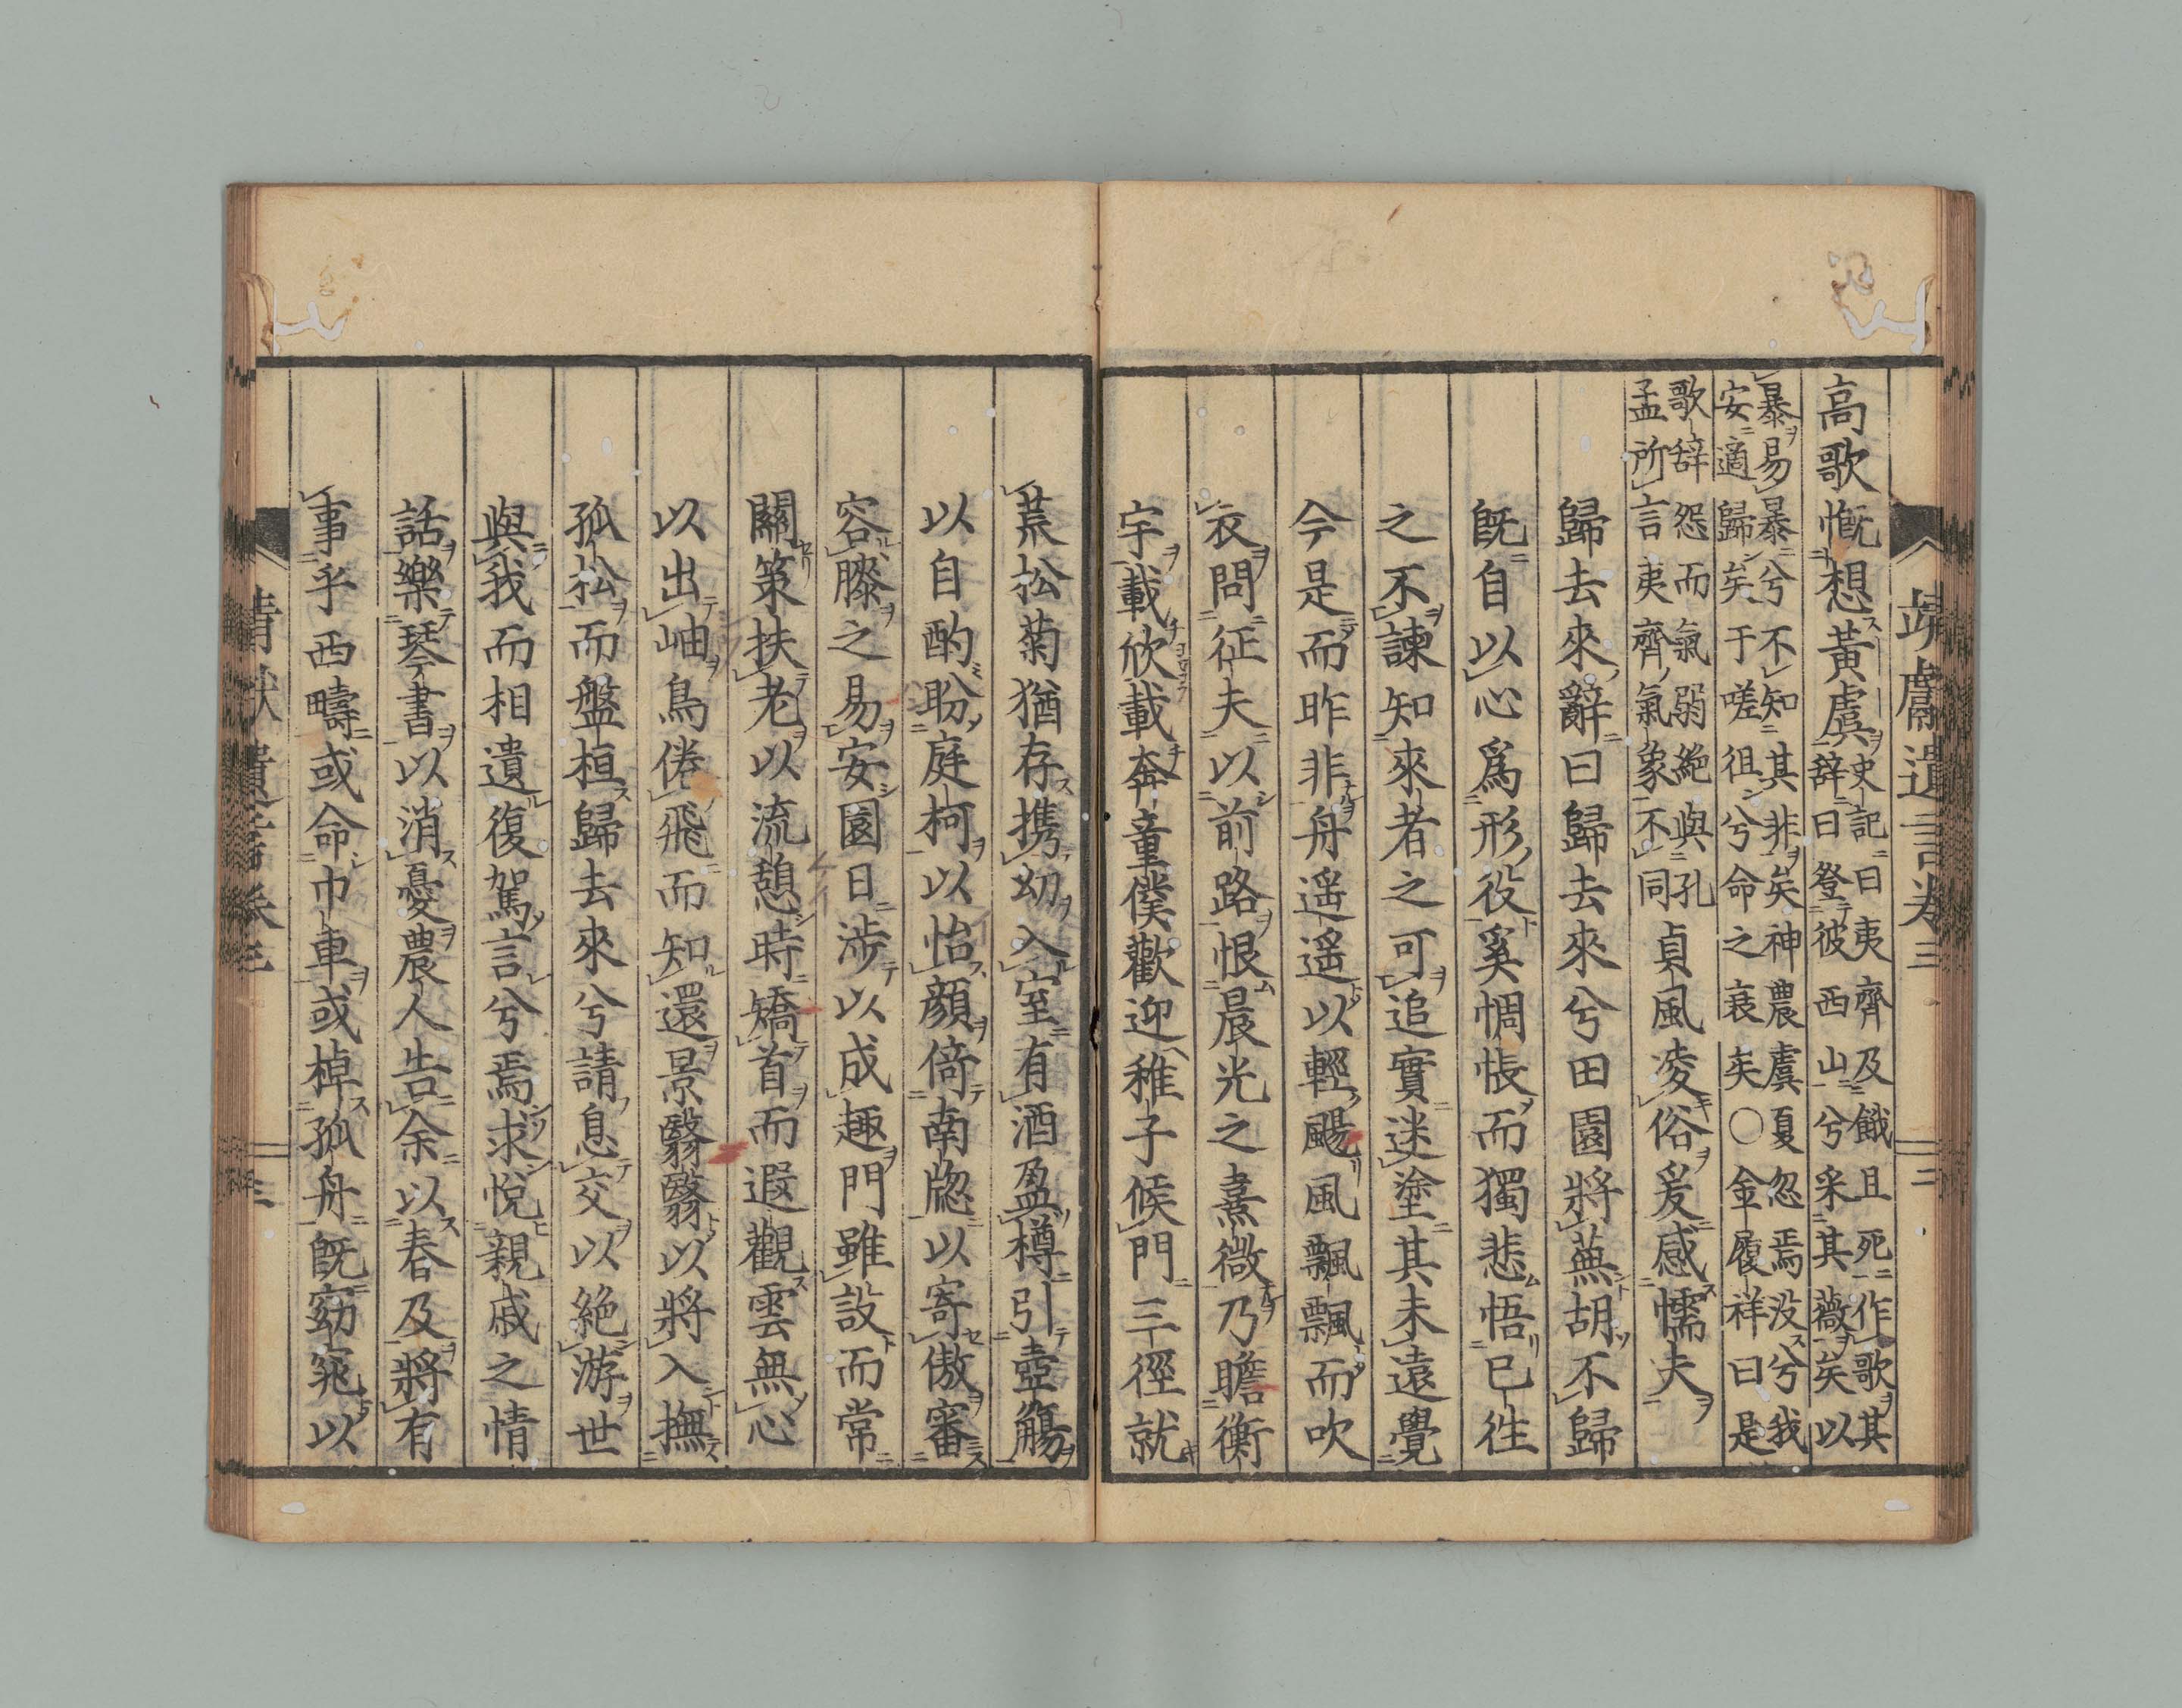 高歌慨想黄虞史記曰夷齊及餓且死作歌其
辭曰登彼西山兮采其薇矣以
暴易暴兮不知其非矣神農虞夏忽焉没兮我
安適歸矣于嗟徂兮命之衰矣○金履祥曰是
歌辞怨而氣弱絶與孔
孟所言夷齊氣象不同貞風凌俗爰感懦夫
歸去來辭曰歸去來兮田園將蕪胡不歸
既自以心爲形役奚惆悵而獨悲悟已往
之不諫知來者之可追實迷塗其未遠覺
今是而昨非舟遥遥以輕颺風飄飄而吹
衣問征夫以前路恨晨光之熹微乃瞻衡
宇載欣載奔童僕歡迎稚子候門三徑就
荒松菊猶存携幼入室有酒盈樽引壺觴
以自酌眄庭柯以怡顔倚南牕以寄傲審
容膝之易安園日渉以成趣門雖設而常
關策扶老以流憩時矯首而遐觀雲無心
以出岫鳥倦飛而知還景翳翳以將入撫
孤松而盤桓歸去來兮請息交以絶游世
與我而相遺復駕言兮焉求悦親戚之情
話樂琴書以消憂農人告余以春及將有
事乎西疇或命巾車或棹孤舟既窈窕以
靖獻遺言卷三
三